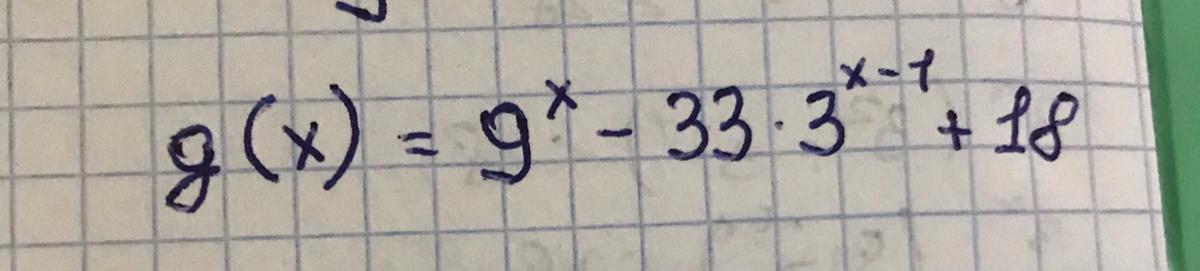 g(x) = 9^x - 33 · 3^{x-1} + 18